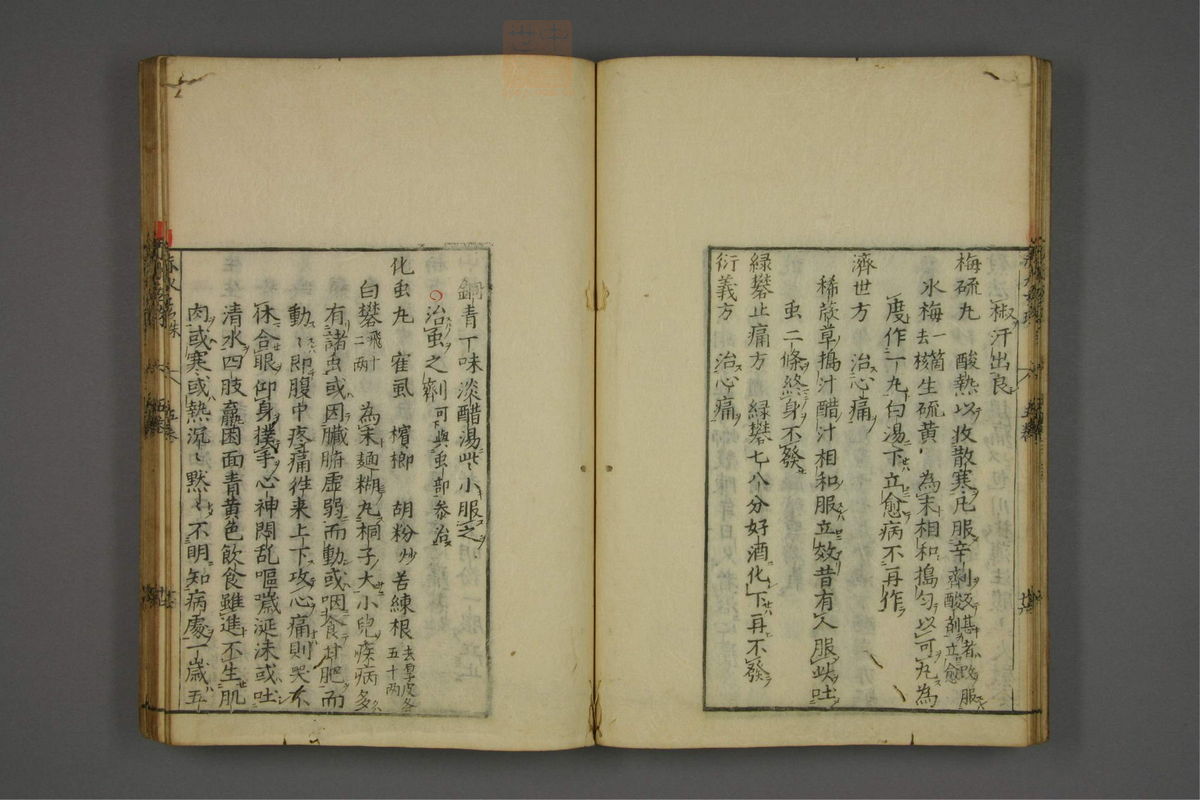 椒汗出良
梅硫丸　酸熱以收散寒凡服辛剤頻甚者改服酸剤立愈
氷梅一箇去核生硫黄為末相和搗匀以可丸為
度作一丸白湯下立愈病不再作
濟世方　治心痛
稀薟草搗汁醋汁相和服立效昔有人服此吐
虫二條終身不發
緑礬止痛方　緑礬七个分好酒化下再不發
衍義方　治心痛
銅青一味淡醋湯些小服之
○治虫之劑可與虫部參治
化虫丸　寉虱　檳榔　胡粉炒　苦練根去厚皮各五十兩
白礬飛十二兩　為末麺糊丸桐子大小兒疾病多
有諸虫或因臟腑虛弱而動或因食甘肥而
動〻即腹中疼痛徃来上下攻心痛則哭不
休合眼仰身撲手心神悶乱嘔噦涎沫或吐
清水四肢羸困面青黄色飲食雖進不生肌
肉或寒或熱沉〻默〻不明知病處一歳五